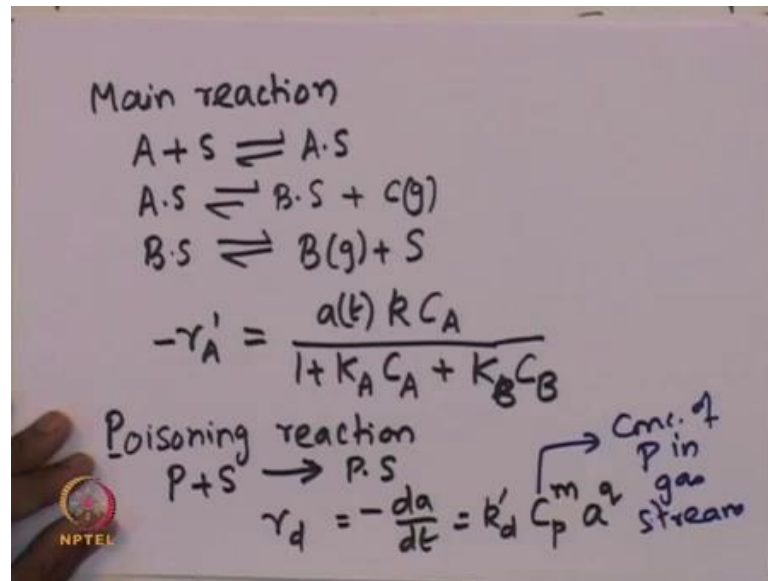 Main reaction
A + S ⇌ A·S
A·S ⇌ B·S + C(g)
B·S ⇌ B(g) + S
-r'_A = a(t) k C_A / (1 + K_A C_A + K_B C_B)
Poisoning reaction
P + S → P·S
r_d = -da/dt = k'_d C_p^m a^q → Conc. of P in gas stream
NPTEL